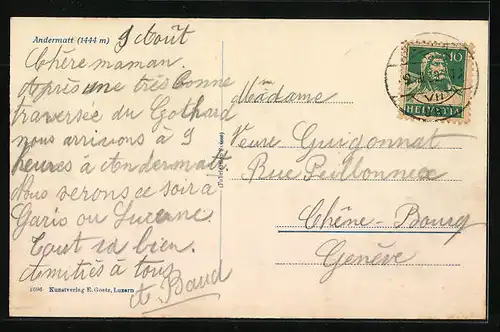 Andermatt (1444 m)
9 Août
Chère maman.
Après une très bonne
traversée du Gothard
nous arrivons à 9
heures à Andermatt.
Nous serons ce soir à
Garis ou Lucerne
Tout va bien.
Amitiés à tous
A Baud
1096 Kunstverlag E. Goetz, Luzern
Madame
Veuve Guigonnat
Rue Peillonnex
Chêne-Bourg
Genève
10
VII
HELVETIA